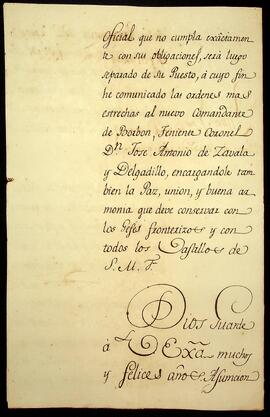 Oficial que no cumpla exâctamen-
te con sus obligaciones, será luego
separado de su Puesto, á cuyo fin
he comunicado las ordenes mas
estrechas al nuevo Comandante
de Borbon, Teniente Coronel
Dn. Jose Antonio de Zavala
y Delgadillo, encargandole tam
bien la Paz, union, y buena ar
monia que deve conservar con
los Gefes fronterizos y con
todos los Castillos de
S. M. F.
Dios guarde
á V. Exâ. muchos
y felices años. Asumcion